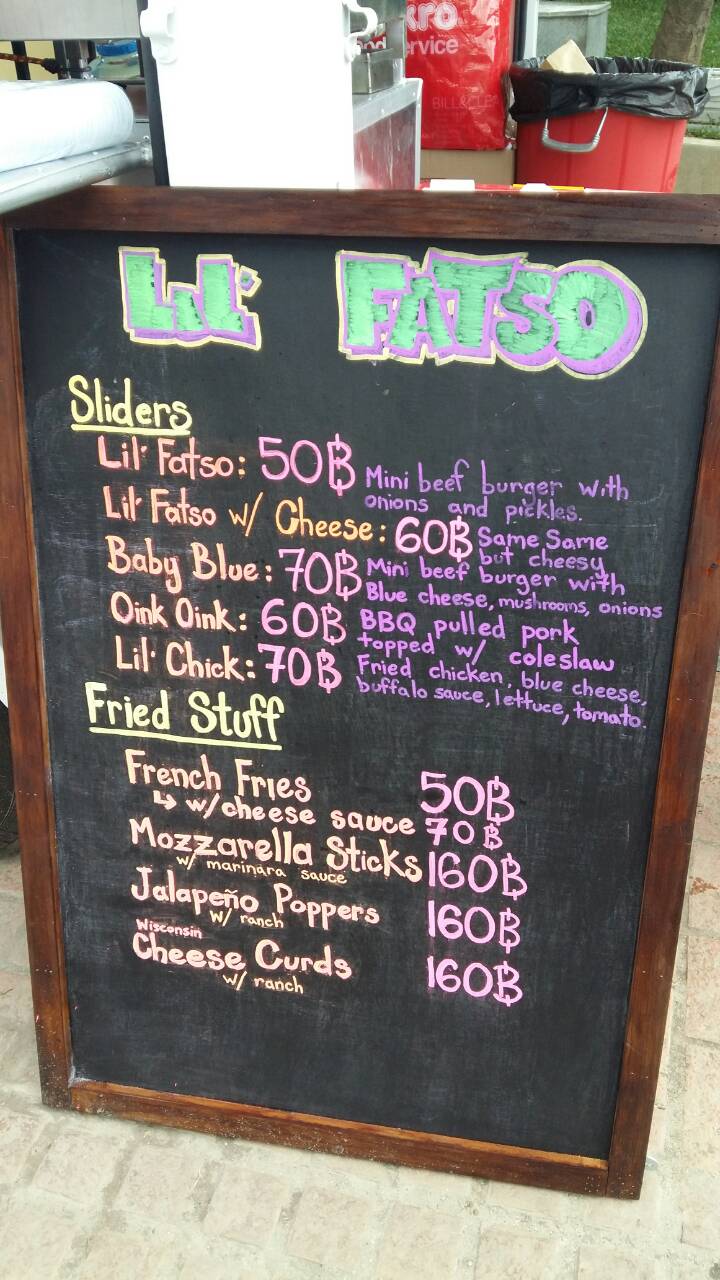 kro
ervice
BILL&CLE
LiL' FATSO
Sliders
Lil' Fatso: 50฿ Mini beef burger with
onions and pickles.
Lil' Fatso w/ Cheese: 60฿ Same Same
but cheesy
Baby Blue: 70฿ Mini beef burger with
Blue cheese, mushrooms, onions
Oink Oink: 60฿ BBQ pulled pork
topped w/ coleslaw
Lil' Chick: 70฿ Fried chicken, blue cheese,
buffalo sauce, lettuce, tomato.
Fried Stuff
French Fries 50฿
↳ w/cheese sauce 70฿
Mozzarella Sticks 160฿
w/ marinara sauce
Jalapeño Poppers 160฿
w/ ranch
Wisconsin
Cheese Curds 160฿
w/ ranch